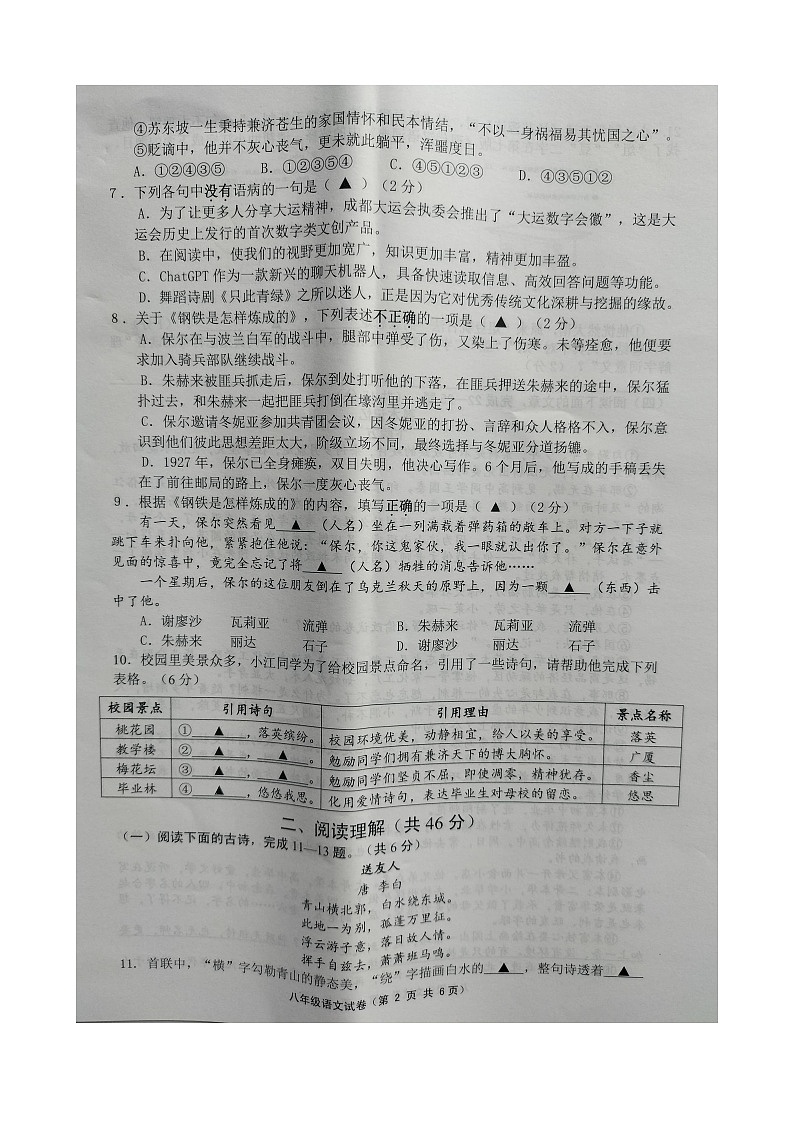 ④苏东坡一生秉持兼济苍生的家国情怀和民本情结，“不以一身祸福易其忧国之心”。
⑤贬谪中，他并不灰心丧气，更未就此躺平，浑噩度日。
A．①②④③⑤ B．①②③⑤④ C．④⑤①②③ D．④③⑤①②
7．下列各句中没有语病的一句是（ ▲ ）（2 分）
A．为了让更多人分享大运精神，成都大运会执委会推出了“大运数字会徽”，这是大
运会历史上发行的首次数字类文创产品。
B．在阅读中，使我们的视野更加宽广，知识更加丰富，精神更加丰盈。
C．ChatGPT 作为一款新兴的聊天机器人，具备快速读取信息、高效回答问题等功能。
D．舞蹈诗剧《只此青绿》之所以迷人，正是因为它对优秀传统文化深耕与挖掘的缘故。
8．关于《钢铁是怎样炼成的》，下列表述不正确的一项是（ ▲ ）（2 分）
A．保尔在与波兰白军的战斗中，腿部中弹受了伤，又染上了伤寒。未等痊愈，他便要
求加入骑兵部队继续战斗。
B．朱赫来被匪兵抓走后，保尔到处打听他的下落，在匪兵押送朱赫来的途中，保尔猛
扑过去，和朱赫来一起把匪兵打倒在壕沟里并逃走了。
C．保尔邀请冬妮亚参加共青团会议，因冬妮亚的打扮、言辞和众人格格不入，保尔意
识到他们彼此思想差距太大，阶级立场不同，最终选择与冬妮亚分道扬镳。
D．1927 年，保尔已全身瘫痪，双目失明，他决心写作。6 个月后，他写成的手稿丢失
在了前往邮局的路上，保尔一度灰心丧气。
9．根据《钢铁是怎样炼成的》的内容，填写正确的一项是（ ▲ ）（2 分）
有一天，保尔突然看见 ▲ （人名）坐在一列满载着弹药箱的敞车上。对方一下子就
跳下车来扑向他，紧紧抱住他说：“保尔，你这鬼家伙，我一眼就认出你了。”保尔在意外
见面的惊喜中，竟完全忘记了将 ▲ （人名）牺牲的消息告诉他……
一个星期后，保尔的这位朋友倒在了乌克兰秋天的原野上，因为一颗 ▲ （东西）击
中了他。
A．谢廖沙 瓦莉亚 流弹 B．朱赫来 瓦莉亚 流弹
C．朱赫来 丽达 石子 D．谢廖沙 丽达 石子
10．校园里美景众多，小江同学为了给校园景点命名，引用了一些诗句，请帮助他完成下列
表格。（6 分）
校园景点 引用诗句 引用理由 景点名称
桃花园 ① ▲ ，落英缤纷。 校园环境优美，动静相宜，给人以美的享受。 落英
教学楼 ② ▲ ， ▲ 。 勉励同学们拥有兼济天下的博大胸怀。 广厦
梅花坛 ③ ▲ ， ▲ 。 勉励同学们坚贞不屈，即使凋零，精神犹存。 香尘
毕业林 ④ ▲ ，悠悠我思。 化用爱情诗句，表达毕业生对母校的留恋。 悠思
二、阅读理解（共 46 分）
（一）阅读下面的古诗，完成 11—13 题。（共 6 分）
送友人
唐 李白
青山横北郭，白水绕东城。
此地一为别，孤蓬万里征。
浮云游子意，落日故人情。
挥手自兹去，萧萧班马鸣。
11．首联中，“横”字勾勒青山的静态美，“绕”字描画白水的 ▲ ，整句诗透着 ▲
八年级语文试卷（第 2 页 共 6 页）